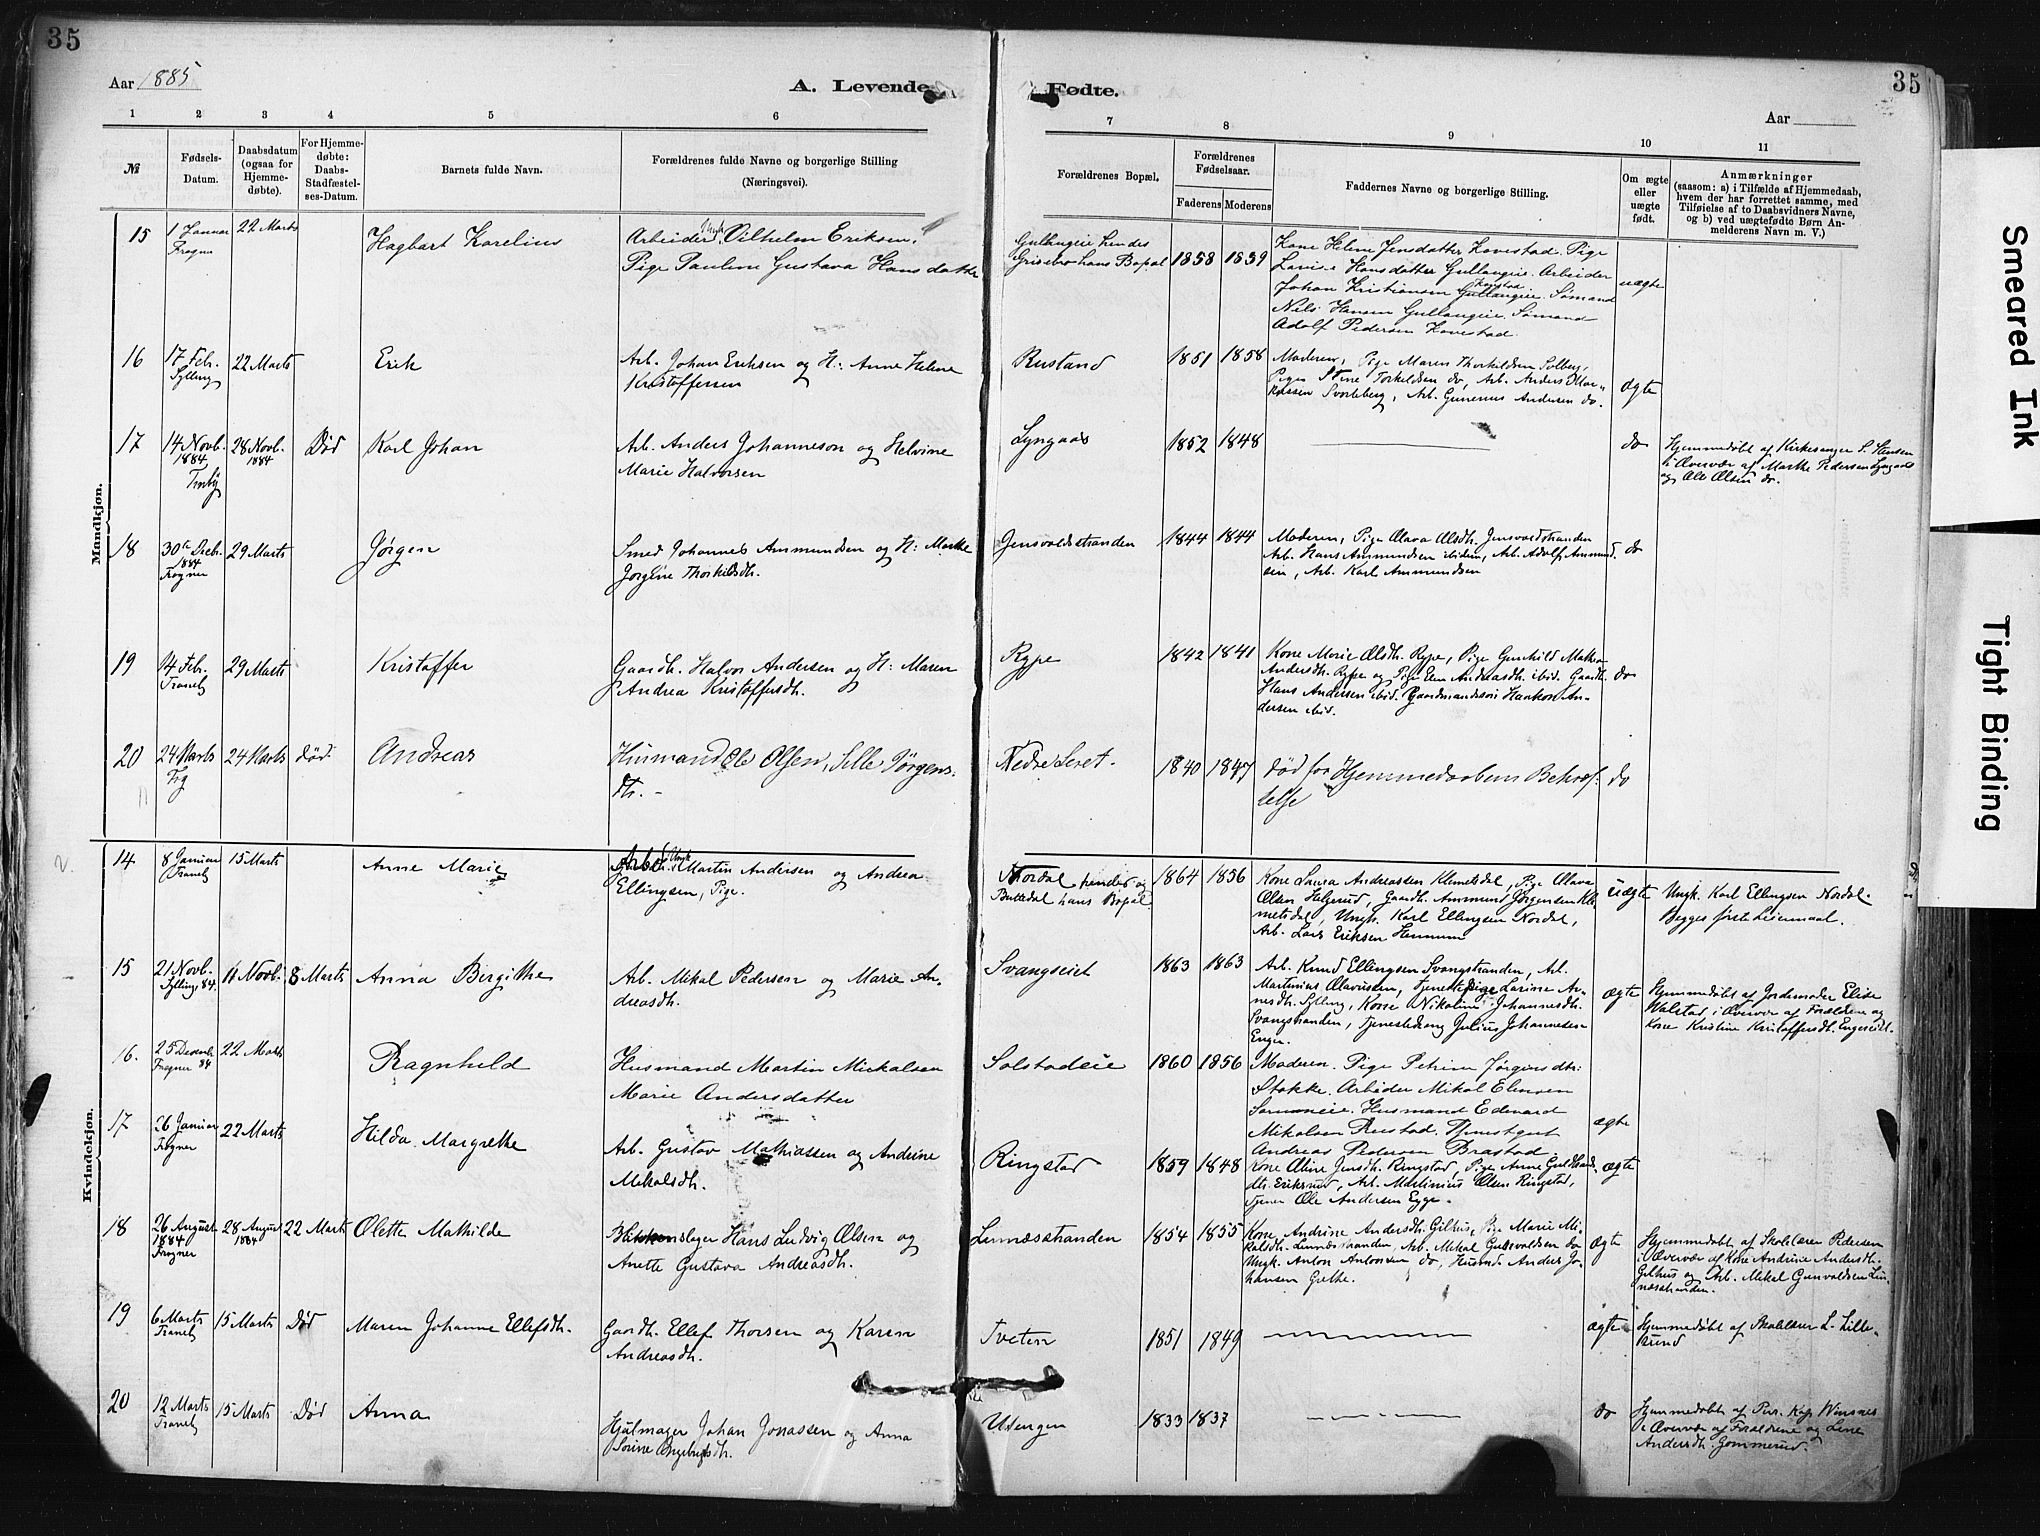 35
35
Aar 1885
A. Levende
Fødte.
Aar
1 2 3 4 5 6 7 8 9 10 11
№
Fødsels-
Datum.
Daabsdatum
(ogsaa for
Hjemme-
døbte).
For Hjemme-
døbte:
Daabs-
Stadfæstel-
ses-Datum.
Barnets fulde Navn.
Forældrenes fulde Navne og borgerlige Stilling
(Næringsvei).
Forældrenes Bopæl.
Forældrenes
Fødselsaar.
Faderens Moderens
Faddernes Navne og borgerlige Stilling.
Om ægte
eller
uægte
født.
Anmærkninger
(saasom: a) i Tilfælde af Hjemmedaab,
hvem der har forrettet samme, med
Tilføielse af to Daabsvidners Navne,
og b) ved uægtefødte Børn An-
melderens Navn m. V.)
Mandkjøn.
15
1 Januar
Frogner
22 Marts
Hagbart Karelius
Arbeider Ungk. Vilhelm Eriksen,
Pige Pauline Gustava Hansdatter
Gullaugeie hendes
Grisebro hans Bopæl
1858 1859
Kone Helene Jensdatter Hovestad. Pige
Lovise Hansdatter Gullaugeie. Arbeider
Johan Kristiansen Gullaugeie. Sømand
Nils Hansen Gullaugeie. Sømand
Adolf Pedersen Hovestad.
uægte
16
17 Feb.
Sylling
22 Marts
Erik
Arb. Johan Eriksen og H: Anne Helene
Kristoffersen
Rustand
1851 1858
Moderen, Pige Maren Thorkildsen Solberg,
Pigen Stine Torkildsen do, Arb. Anders Mar-
kussen Svarteberg, Arb. Gunerius Andersen do.
ægte
17
14 Novb.
1884
Tronby
28 Novb.
1884
Død
Karl Johan
Arb. Anders Johannesen og Helvine
Marie Halvorsen
Lyngaas
1852 1848
do
Hjemmedøbt af Kirkesanger S. Hansen
i Overvær af Marthe Pedersen Lyngaas
og Ole Olsen do.
18
30te Decbr.
1884
Frogner
29 Marts
Jørgen
Smed Johannes Ammundsen og H: Marthe
Jørgine Thorkildsdh.
Jensvoldstranden
1844 1844
Moderen, Pige Olava Olsdh. Jensvoldstranden
Arb. Hans Ammundsen ibidem, Arb. Adolf Ammund-
sen, Arb. Karl Ammundsen
do
19
14 Feb.
Tranby
29 Marts
Kristoffer
Gaardb. Halvor Andersen og H: Maren
Andrea Kristoffersdh.
Rype
1842 1841
Kone Marie Olsdh. Rype, Pige Gunhild Mathea
Andersdh. Rype og Pige Elen Andreasdh. ibid. Gaardb.
Hans Andersen ibid. Gaardmandssøn Haakon An-
dersen ibid.
do
20
24 Marts
Frg
24 Marts
død.
Andreas
Husmand Ole Olsen, Sille Jørgens-
dtr. -
Nedre Seret.
1840 1847
død før Hjemmedaabens Bekræf-
telse
do
Kvindekjøn.
14
8 Januar
Tranby
15 Marts
Anne Marie
Arbd. Ungk. Martin Andersen og Andrea
Ellingsen, Pige.
Nordal hendes og
Buttedal hans Bopæl.
1864 1856
Kone Laura Andreassen Klemetsdal, Pige Olava
Olsen Helgerud, Gaardb. Ammund Jørgensen Kle-
metsdal, Ungk. Karl Ellingsen Nordal,
Arb. Lars Eriksen Hennum
uægte
Ungk. Karl Ellingsen Nordal.
Begges første Leiermaal.
15
21 Novb.
Sylling 84.
11 Novb.
8 Marts
Anna Birgithe
Arb. Mikal Pedersen og Marie An-
dreasdh.
Svangseiet
1863 1863
Arb. Knud Ellingsen Svangstranden, Arb.
Martinius Olavussen, Tjenestepige Larine Ar-
nesdh. Sylling, Kone Nikoline Johannesdh.
Svangstranden, Tjenestedreng Julius Johannesen
Enger.
ægte
Hjemmedøbt af Jordemoder Elise
Walstad i Overvær af Forældrene og
Kone Kristine Kristoffersdh. Engeseiet.
16.
25 Decemb.
Frogner 84
22 Marts
Ragnhild
Husmand Martin Mickalsen
Marie Andersdatter
Solstadeie
1860 1856
Moderen. Pige Petrine Jørgensdtr.
Stokke. Arbeider Mikal Elensen
Husmand Edevard
Mikalsen Rustad. Tjenestgut
Andreas Pedersen Brastad
ægte
17
26 Januar
Frogner
22 Marts
Hilda Margrethe
Arb. Gustav Mathiassen og Andrine
Mikalsdh.
Ringstad
1859 1848
Kone Oline Jensdh. Ringstad, Pige Anne Guldbrands-
dtr. Eriksrud, Arb. Martinius Olsen Ringstad,
Tjener Ole Andersen Egge.
ægte
18
26 August
1884
Frogner
28 August
1884
22 Marts
Olette Mathilde
Blikkenslager Hans Ludvig Olsen og
Anette Gustava Andreasdh.
Linnæsstranden
1854 1855
Kone Andrine Andersdh. Gilhus, Pige Marie Mi-
kalsdh. Linnæsstranden, Arb. Mikal Gulsvoldsen do
Ungk. Anton Antonsen do, Husmd. Anders Jo-
hansen Gilhus.
ægte
Hjemmedøbt af Skolelærer Pedersen
i Overvær af Kone Andrine Andersdh.
Gilhus og Arb. Mikal Gunvaldsen Lin-
næsstranden.
19
6 Marts
Tranby
15 Marts
Død
Maren Johanne Ellefsdh.
Gaardb. Ellef Thorsen og Karen
Andreasdh.
Tveten
1851 1849
ægte
Hjemmedøbt af Skolelærer L. Lille-
sund
20
12 Marts
Tranby
15 Marts
Død
Anna
Hjulmager Johan Jonassen og Anna
Sorine Engebretsdh.
Utengen
1833 1837
do
Hjemmedøbt af Pers. Kap. Winsnes
i Overvær af Forældrene og Lene
Andersdh. Gommerud.
Smeared Ink
Tight Binding